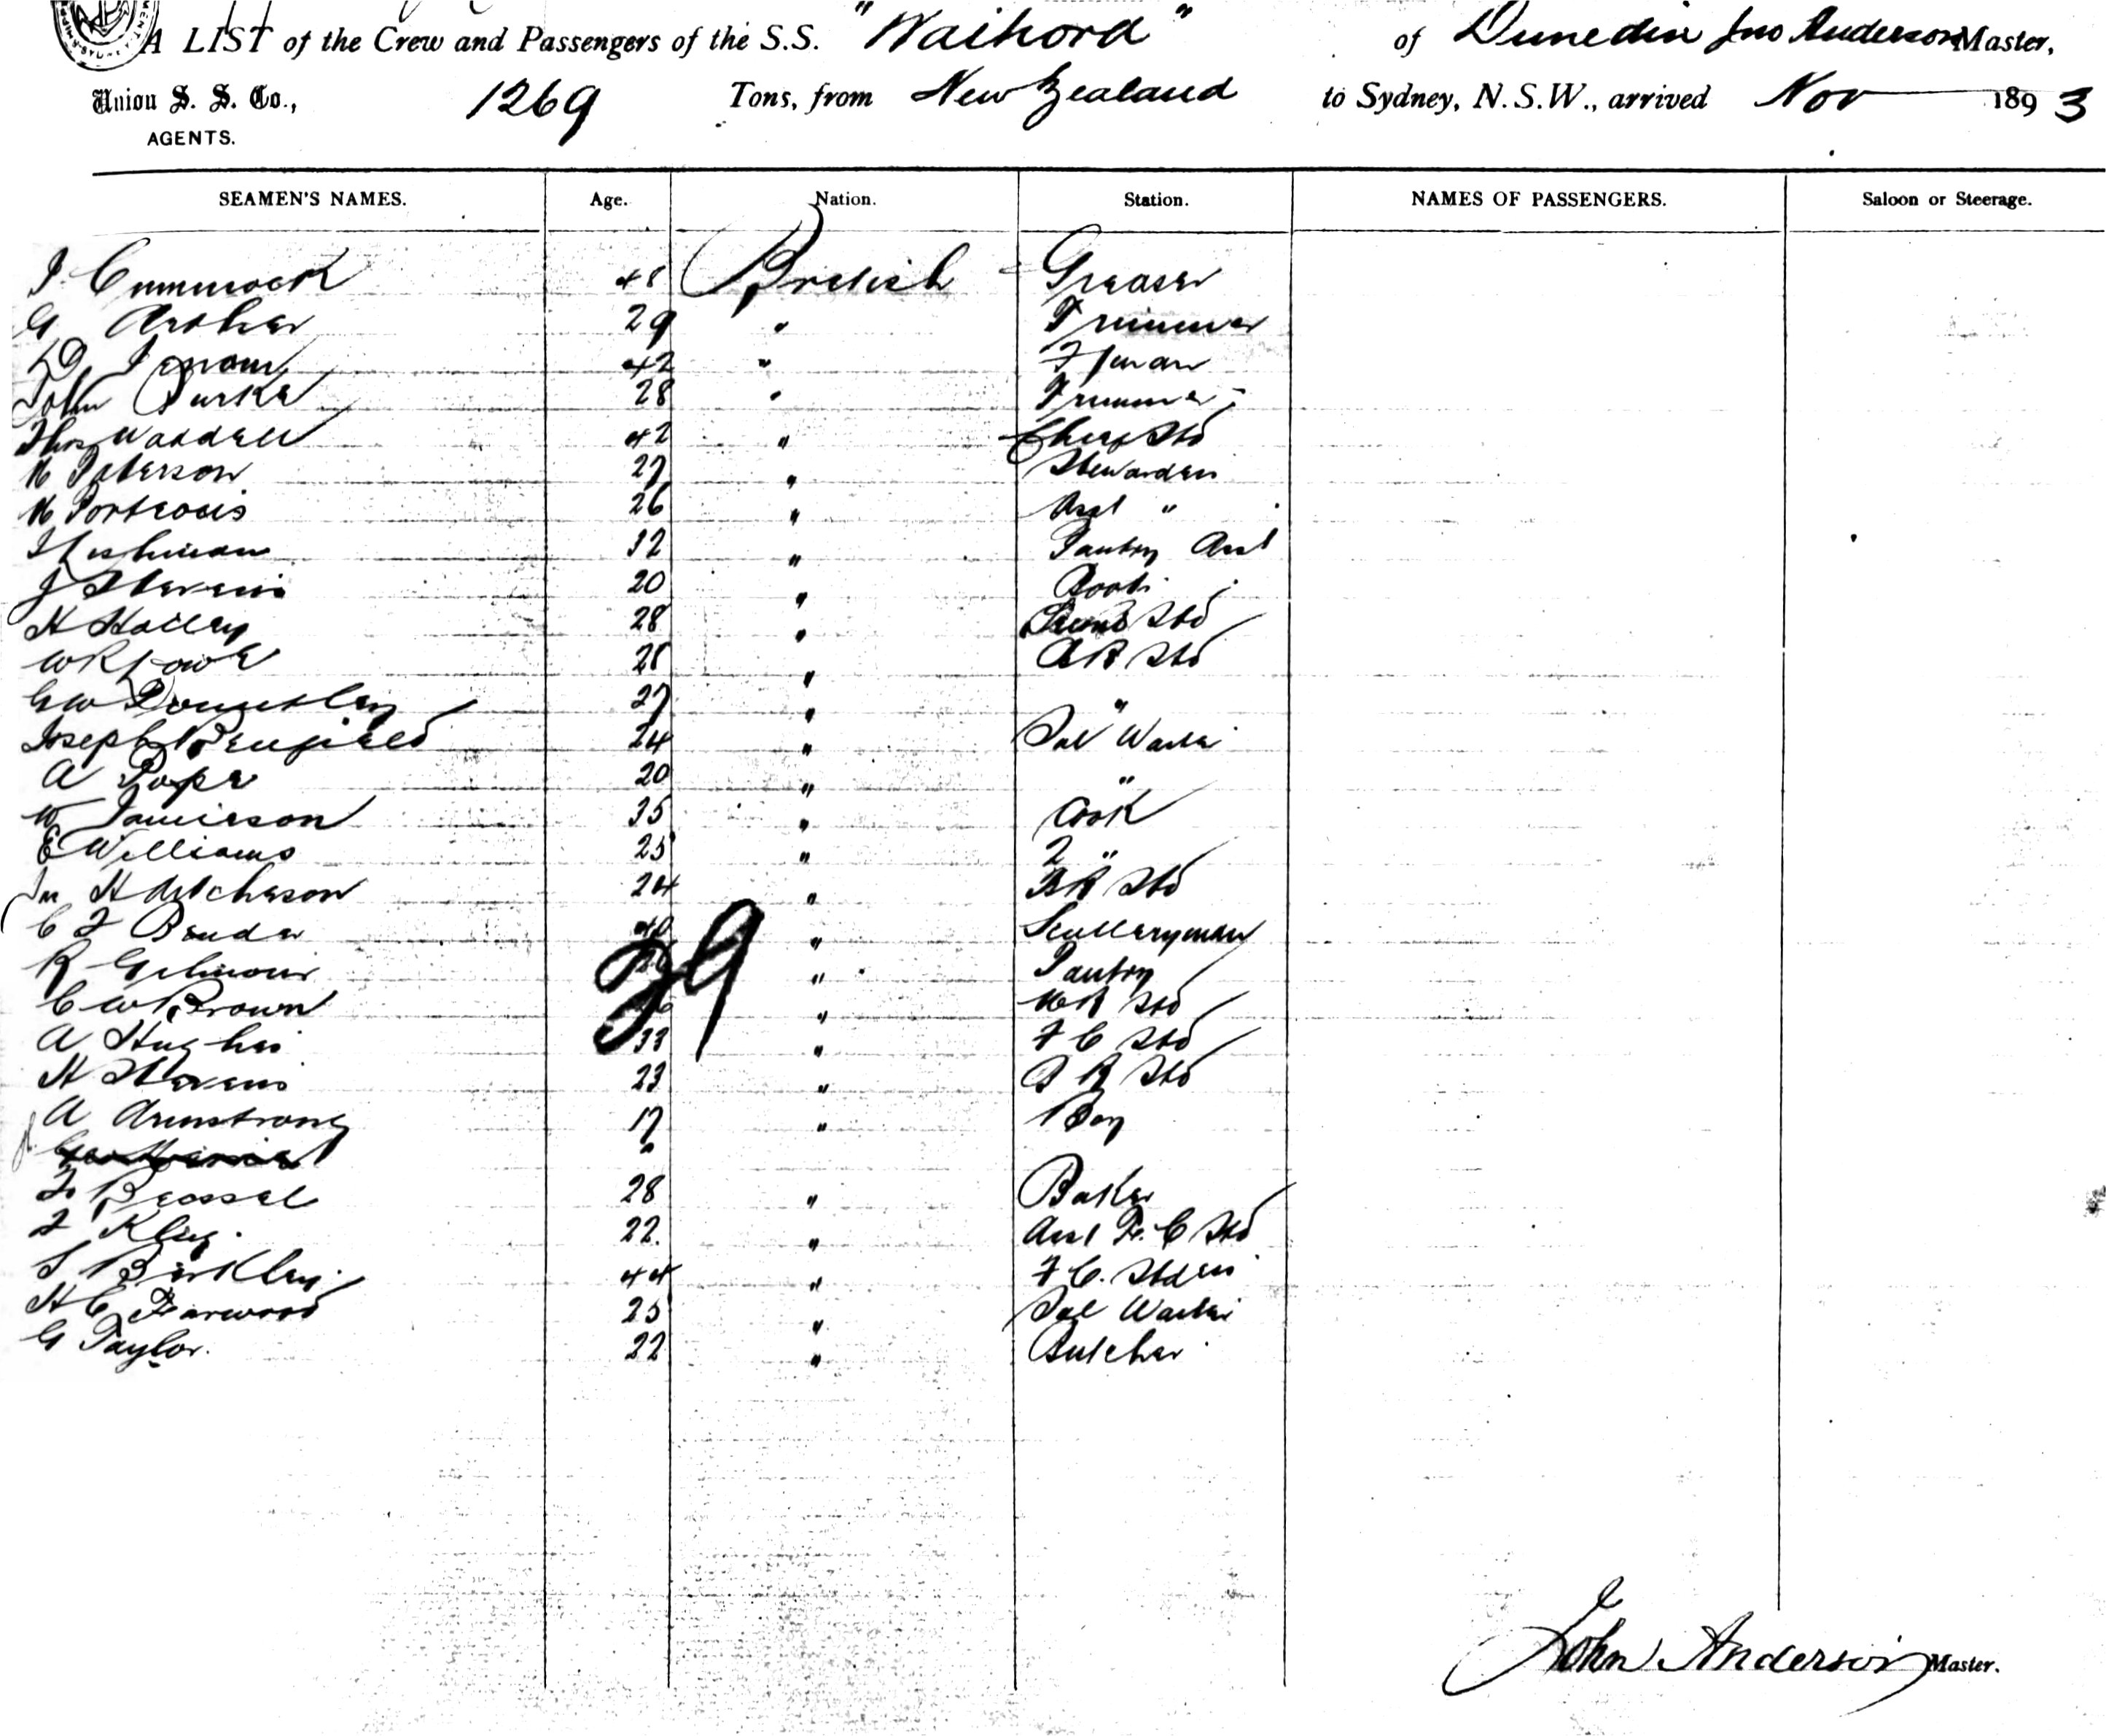 A LIST of the Crew and Passengers of the S.S. "Waihora" of Dunedin Jno Anderson Master,
Union S. S. Co., 1269 Tons, from New Zealand to Sydney, N.S.W., arrived Nov 1893
AGENTS.
SEAMEN'S NAMES. Age. Nation. Station. NAMES OF PASSENGERS. Saloon or Steerage.
J Cummock 48 British Greaser
G Archer 29 " Trimmer
D 42 " Fman
John Burke 28 " Trimmer
Thos Waddell 42 " Chief Std
M Paterson 27 " Stewardess
M Porteous 26 " Asst "
Hishman 32 " Pantry Asst
J Stevens 20 " Boots
H Hailey 28 " Std
W R Lowe 28 " B R Std
G W 27 " "
Joseph Benfield 24 " Sal Waiter
A Pope 20 " "
W Jamieson 35 " Cook
E Williams 25 " 2 "
Jn Hutcheson 24 " B R Std
C F Bender 40 " Sculleryman
R Gilmour " Pantry
C W Brown " M R Std
39
A Hughes 33 " F C Std
H Stevens 23 " S R Std
A Armstrong 17 " Boy
F 28 " Baker
F King 22. " Asst F. C Std
S Berkley 44 " F C. Stdess
H C Farwood 25 " Sal Waiter
G Taylor. 22 " Butcher
John Anderson Master.